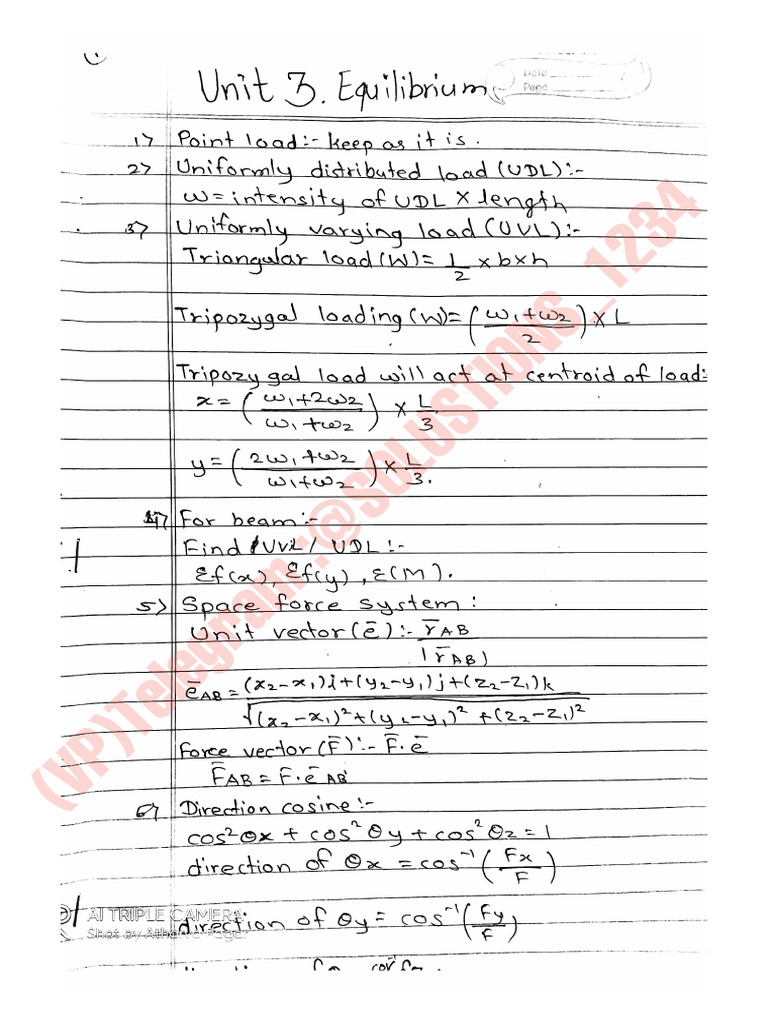 Date
Page
Unit 3. Equilibrium
1) Point load:- keep as it is.
2) Uniformly distributed load (UDL):-
W = intensity of UDL × length
3) Uniformly varying load (UVL):-
Triangular load (W) = 1/2 × b × h
Tripozygal loading (W) = (ω1+ω2/2) × L
Tripozygal load will act at centroid of load:
x = (ω1+2ω2/ω1+ω2) × L/3
y = (2ω1+ω2/ω1+ω2) × L/3.
4) For beam:-
Find UVL / UDL:-
Σf(x), Σf(y), Σ(M).
5) Space force system:
Unit vector (ē):- r̄AB/|r̄AB|
ēAB = (x2-x1)i+(y2-y1)j+(z2-z1)k/√(x2-x1)²+(y2-y1)²+(z2-z1)²
Force vector (F̄):- F̄.ē
F̄AB = F.ēAB
6) Direction cosine:-
cos²θx + cos²θy + cos²θz = 1
direction of θx = cos⁻¹(Fx/F)
direction of θy = cos⁻¹(Fy/F)
AI TRIPLE CAMERA
Shot by
(VP)Telegram:@SOLUSTIONS_1234